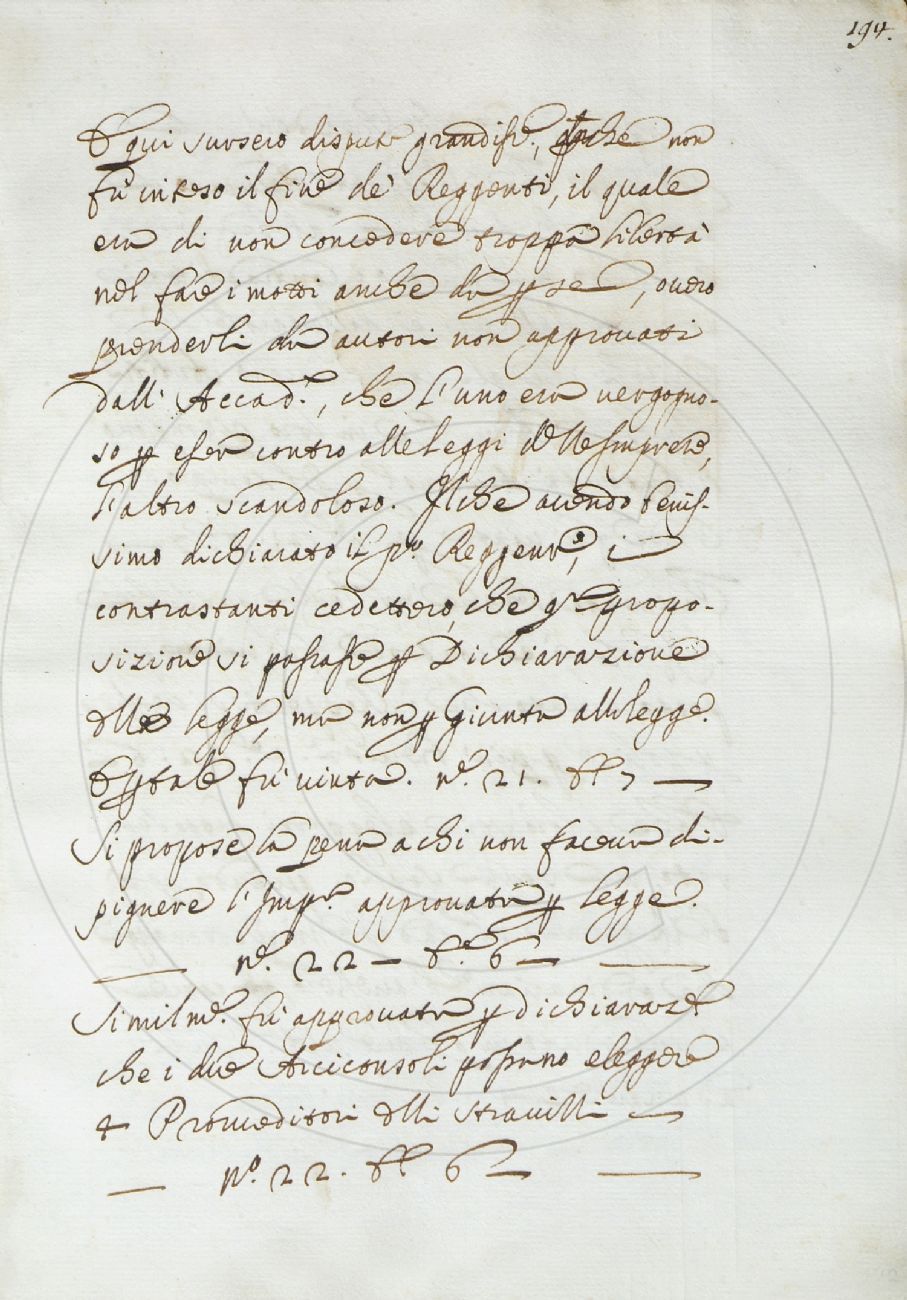 194.
E qui sursero dispute grandiss.e, perche non
fù inteso il fine de' Reggenti, il quale
era di non concedere troppa libertà
nel fare i motti anche da per se, overo
prenderli da autori non approvati
dall' Accad.a, che l'uno era vergogno-
so per esser contro alle leggi dell'Imprese,
l'altro scandoloso. Il che avendo benis-
simo dichiarato il p.o Reggente, i
contrastanti cedettero, che q.ta propo-
sizione si passasse per Dichiarazione
della legge, ma non per Giunta alla legge.
E per tale fù vinta. n.e 21. b.e 7 —
Si propose la pena a chi non faceva di-
pignere l'Imp.a approvata per legge.
— n.e 22 — b.e 6 — —
Similm.e fù approvata per dichiaraz.e
che i due Arciconsoli possano eleggere
4 Proveditori delli stravizzi —
— n.e 22. b.e 6 — —